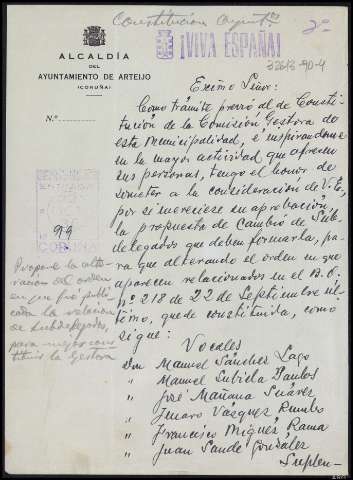 Constitución Aynt.º
2º
¡VIVA ESPAÑA!
ALCALDÍA
DEL
AYUNTAMIENTO DE ARTEIJO
(CORUÑA)
32613-90-4
Excmo Señor:
N.º
Como trámite previo al de Consti-
tución de la Comisión Gestora de
esta Municipalidad, e inspirandome
en la mayor actividad que ofrecen
sus personas, tengo el honor de
someter a la consideración de V.E.,
por si mereciese su aprobación,
la propuesta de Cambio de Sub-
delegados que deben formarla, pa-
ra que alterando el orden en que
aparecen relacionados en el B.O.
nº 218 de 22 de Septiembre úl-
timo, quede constituida, como
sigue:
99
CORUÑA
Propone la alte-
racion del orden
en que fué publi-
cada la relacion
de subdelegados,
para mejor cons-
tituir la Gestora
Vocales
Don Manuel Sánchez Lago
" Manuel Subiela Dans
" José Mañana Suárez
" Jenaro Vázquez Rumbo
" Francisco Miguez Rama
" Juan Sande González
Suplen-